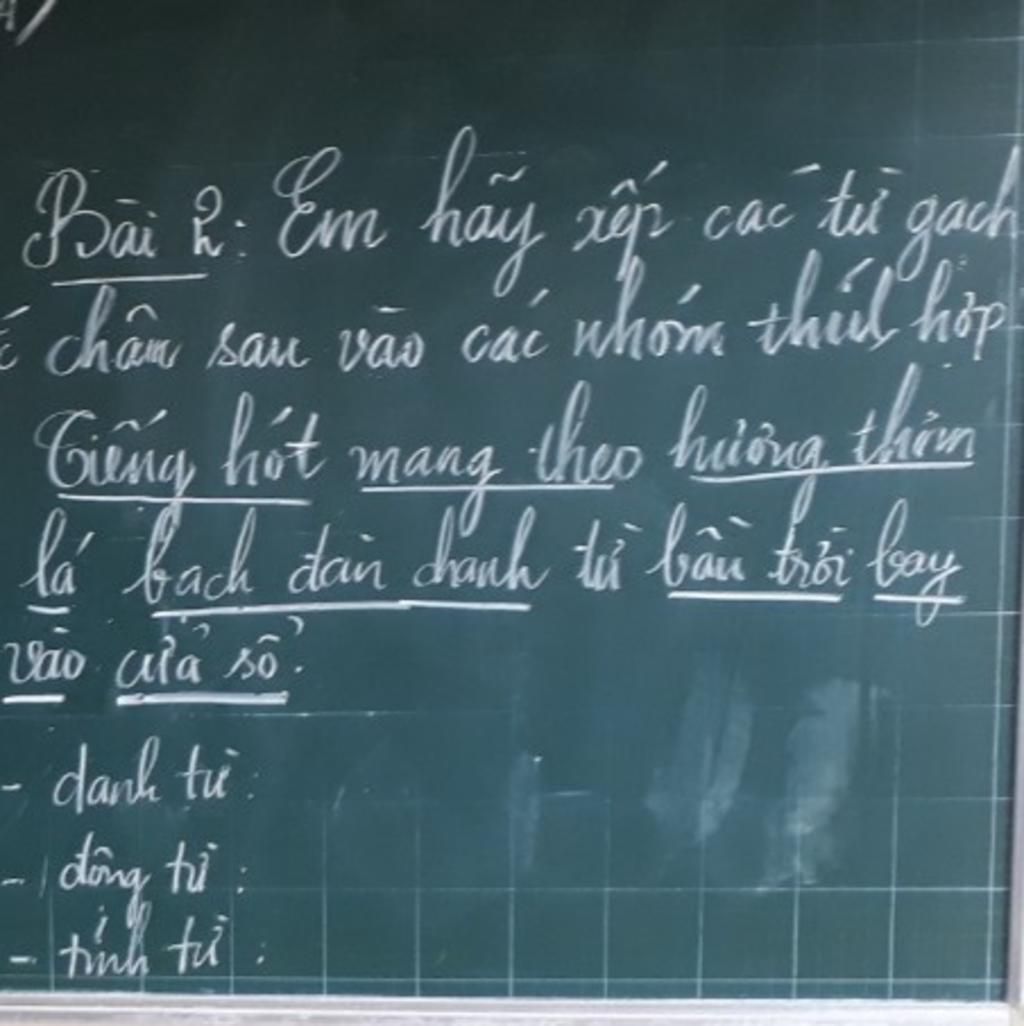 Bài 2: Em hãy xếp các từ gạch
chân sau vào các nhóm thích hợp
Tiếng hót mang theo hương thơm
lá bạch đàn chanh từ bầu trời bay
vào cửa sổ.
- danh từ:
- động từ:
- tính từ: